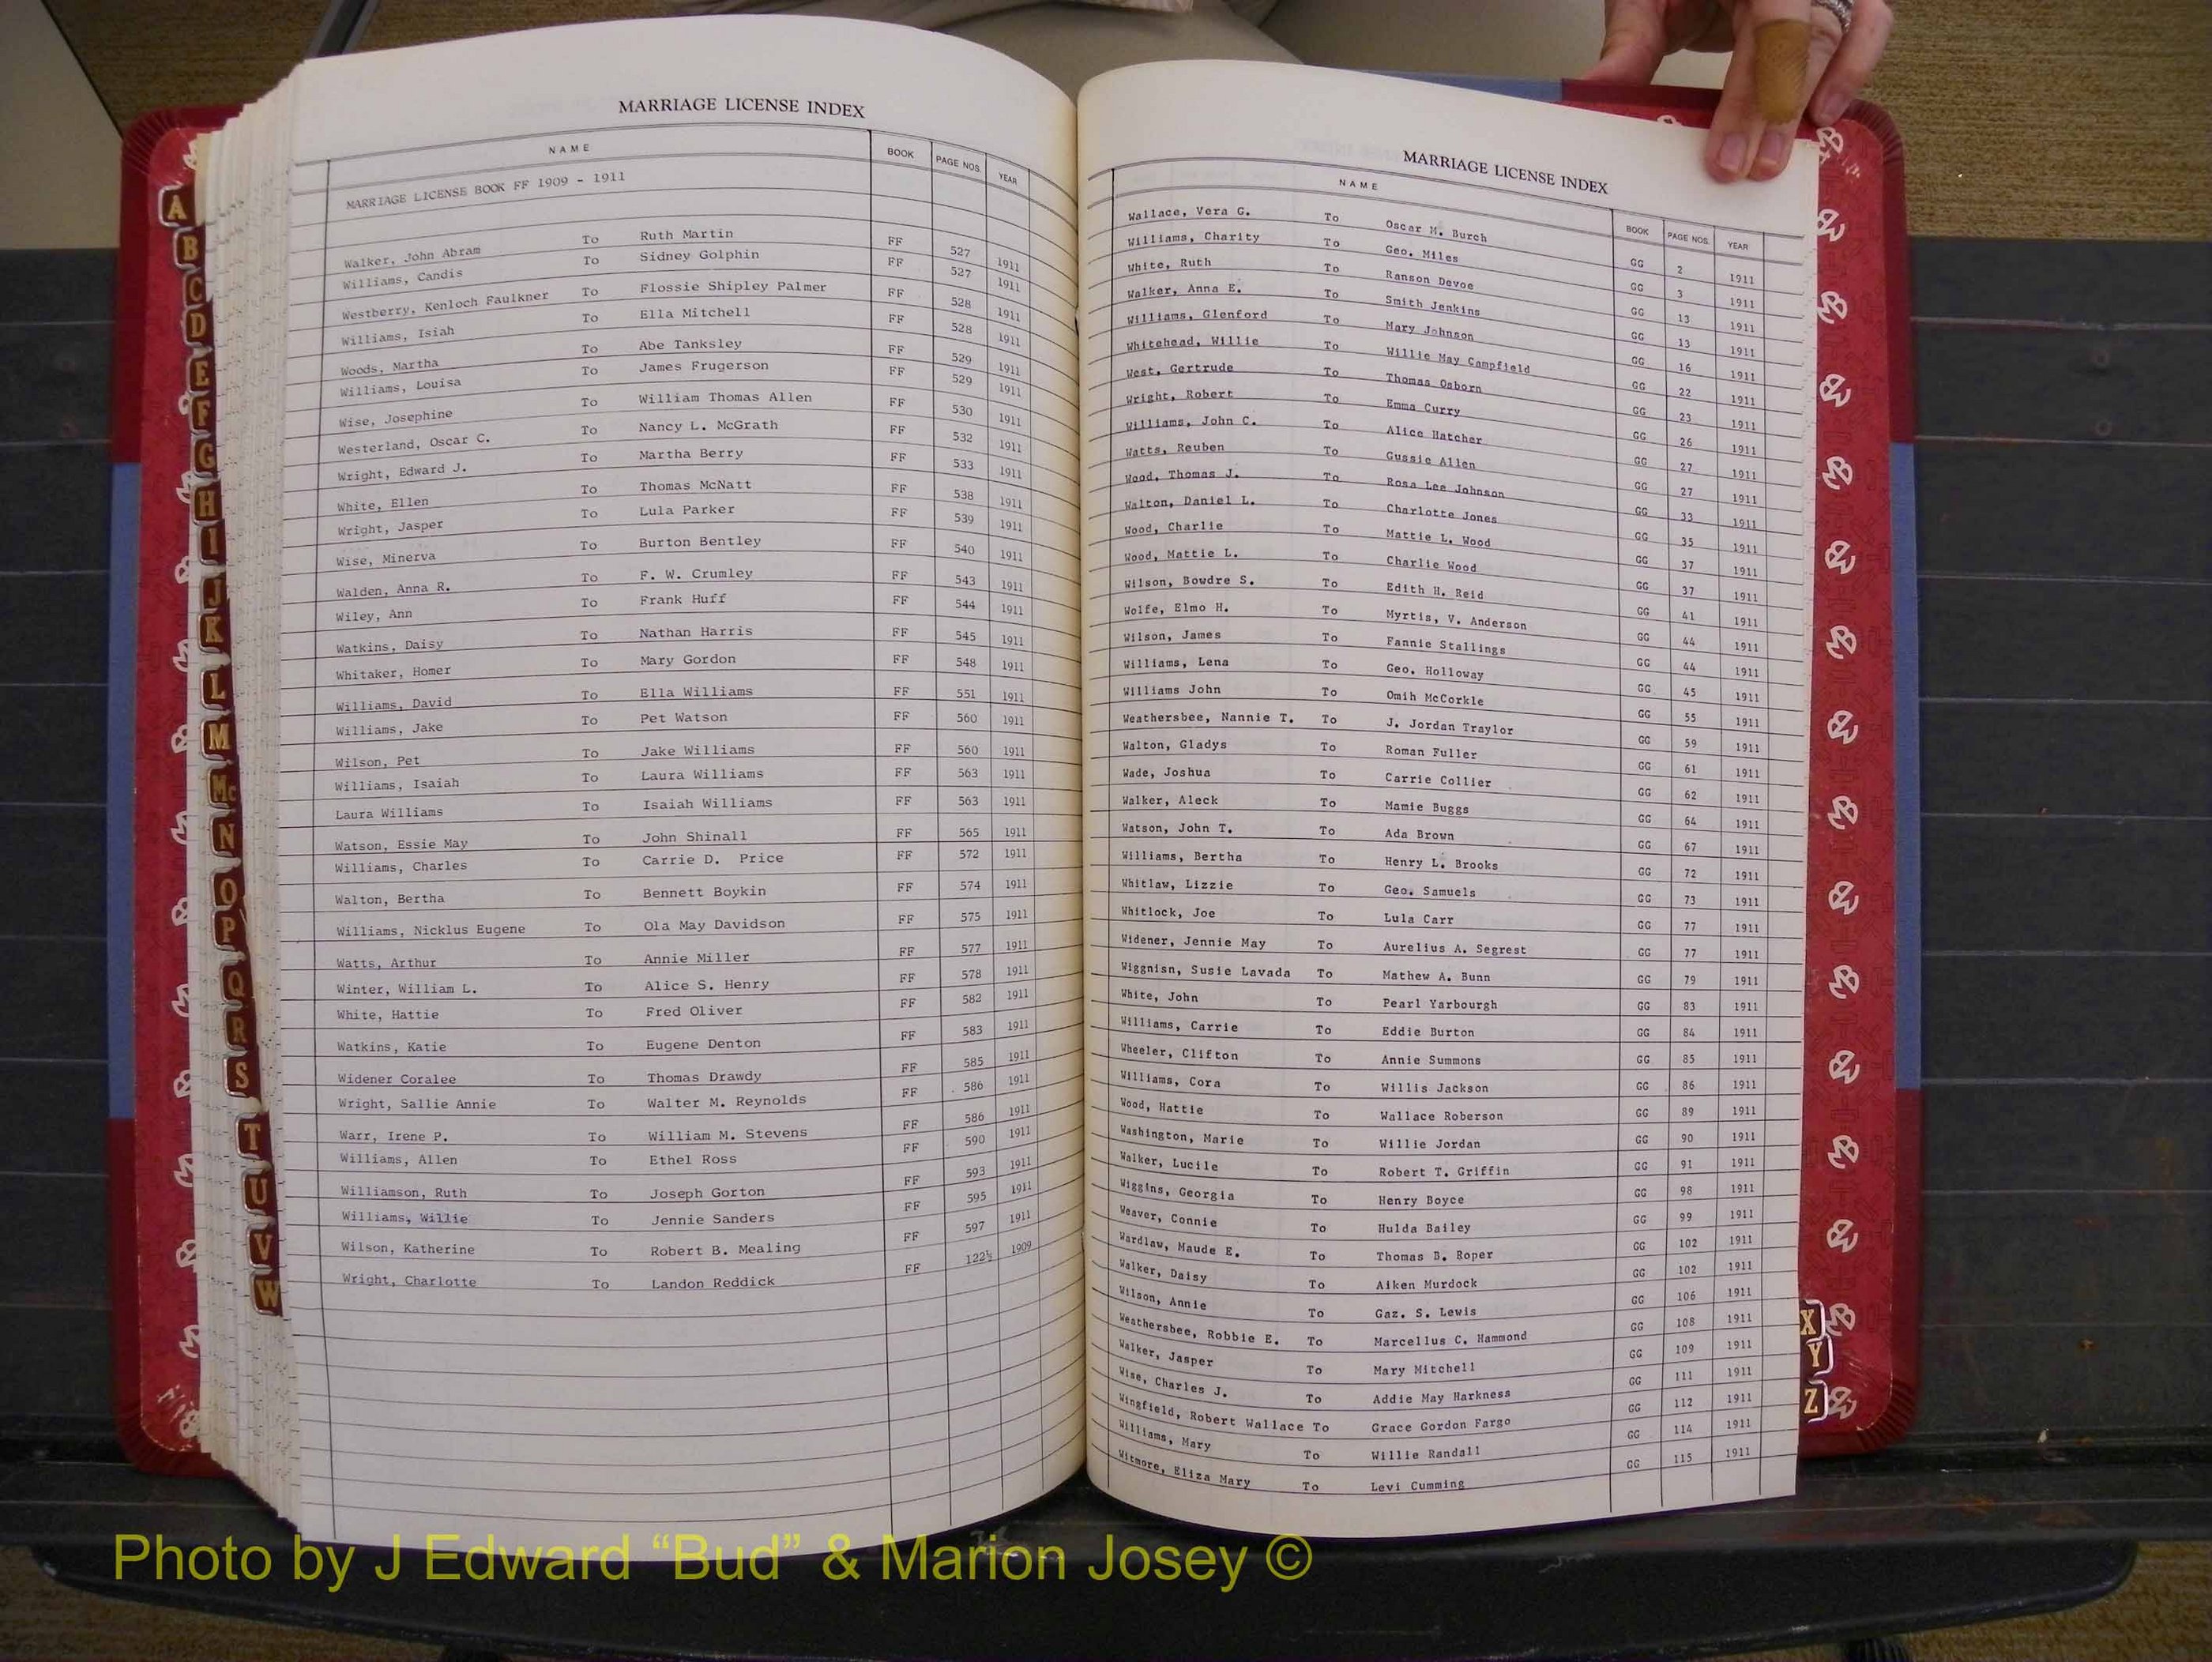 MARRIAGE LICENSE INDEX
NAME BOOK PAGE NOS. YEAR
MARRIAGE LICENSE BOOK FF 1909 - 1911
Walker, John Abram To Ruth Martin FF 527 1911
Williams, Candis To Sidney Golphin FF 527 1911
Westberry, Kenloch Faulkner To Flossie Shipley Palmer FF 528 1911
Williams, Isiah To Ella Mitchell FF 528 1911
Woods, Martha To Abe Tanksley FF 529 1911
Williams, Louisa To James Frugerson FF 529 1911
Wise, Josephine To William Thomas Allen FF 530 1911
Westerland, Oscar C. To Nancy L. McGrath FF 532 1911
Wright, Edward J. To Martha Berry FF 533 1911
White, Ellen To Thomas McNatt FF 538 1911
Wright, Jasper To Lula Parker FF 539 1911
Wise, Minerva To Burton Bentley FF 540 1911
Walden, Anna R. To F. W. Crumley FF 543 1911
Wiley, Ann To Frank Huff FF 544 1911
Watkins, Daisy To Nathan Harris FF 545 1911
Whitaker, Homer To Mary Gordon FF 548 1911
Williams, David To Ella Williams FF 551 1911
Williams, Jake To Pet Watson FF 560 1911
Wilson, Pet To Jake Williams FF 560 1911
Williams, Isaiah To Laura Williams FF 563 1911
Laura Williams To Isaiah Williams FF 563 1911
Watson, Essie May To John Shinall FF 565 1911
Williams, Charles To Carrie D. Price FF 572 1911
Walton, Bertha To Bennett Boykin FF 574 1911
Williams, Nicklus Eugene To Ola May Davidson FF 575 1911
Watts, Arthur To Annie Miller FF 577 1911
Winter, William L. To Alice S. Henry FF 578 1911
White, Hattie To Fred Oliver FF 582 1911
Watkins, Katie To Eugene Denton FF 583 1911
Widener Coralee To Thomas Drawdy FF 585 1911
Wright, Sallie Annie To Walter M. Reynolds FF 586 1911
Warr, Irene P. To William M. Stevens FF 586 1911
Williams, Allen To Ethel Ross FF 590 1911
Williamson, Ruth To Joseph Gorton FF 593 1911
Williams, Willie To Jennie Sanders FF 595 1911
Wilson, Katherine To Robert B. Mealing FF 597 1911
Wright, Charlotte To Landon Reddick FF 122½ 1909
MARRIAGE LICENSE INDEX
NAME BOOK PAGE NOS. YEAR
Wallace, Vera G. To Oscar M. Burch GG 2 1911
Williams, Charity To Geo. Miles GG 3 1911
White, Ruth To Ranson Devoe GG 13 1911
Walker, Anna E. To Smith Jenkins GG 13 1911
Williams, Glenford To Mary Johnson GG 16 1911
Whitehead, Willie To Willie May Campfield GG 22 1911
West, Gertrude To Thomas Osborn GG 23 1911
Wright, Robert To Emma Curry GG 26 1911
Williams, John C. To Alice Hatcher GG 27 1911
Watts, Reuben To Gussie Allen GG 27 1911
Wood, Thomas J. To Rosa Lee Johnson GG 33 1911
Walton, Daniel L. To Charlotte Jones GG 35 1911
Wood, Charlie To Mattie L. Wood GG 37 1911
Wood, Mattie L. To Charlie Wood GG 37 1911
Wilson, Bowdre S. To Edith H. Reid GG 41 1911
Wolfe, Elmo H. To Myrtis, V. Anderson GG 44 1911
Wilson, James To Fannie Stallings GG 44 1911
Williams, Lena To Geo. Holloway GG 45 1911
Williams John To Omih McCorkle GG 55 1911
Weathersbee, Nannie T. To J. Jordan Traylor GG 59 1911
Walton, Gladys To Roman Fuller GG 61 1911
Wade, Joshua To Carrie Collier GG 62 1911
Walker, Aleck To Mamie Buggs GG 64 1911
Watson, John T. To Ada Brown GG 67 1911
Williams, Bertha To Henry L. Brooks GG 72 1911
Whitlaw, Lizzie To Geo. Samuels GG 73 1911
Whitlock, Joe To Lula Carr GG 77 1911
Widener, Jennie May To Aurelius A. Segrest GG 77 1911
Wiggnisn, Susie Lavada To Mathew A. Bunn GG 79 1911
White, John To Pearl Yarbourgh GG 83 1911
Williams, Carrie To Eddie Burton GG 84 1911
Wheeler, Clifton To Annie Summons GG 85 1911
Williams, Cora To Willis Jackson GG 86 1911
Wood, Hattie To Wallace Roberson GG 89 1911
Washington, Marie To Willie Jordan GG 90 1911
Walker, Lucile To Robert T. Griffin GG 91 1911
Wiggins, Georgia To Henry Boyce GG 98 1911
Weaver, Connie To Hulda Bailey GG 99 1911
Wardlaw, Maude E. To Thomas B. Roper GG 102 1911
Walker, Daisy To Aiken Murdock GG 102 1911
Wilson, Annie To Gaz. S. Lewis GG 106 1911
Weathersbee, Robbie E. To Marcellus C. Hammond GG 108 1911
Walker, Jasper To Mary Mitchell GG 109 1911
Wise, Charles J. To Addie May Harkness GG 111 1911
Wingfield, Robert Wallace To Grace Gordon Fargo GG 112 1911
Williams, Mary To Willie Randall GG 114 1911
Witmore, Eliza Mary To Levi Cumming GG 115 1911
A
B
C
D
E
F
G
H
I
J
K
L
M
Mc
N
O
P
Q
R
S
T
U
V
W
X
Y
Z
Photo by J Edward “Bud” & Marion Josey ©